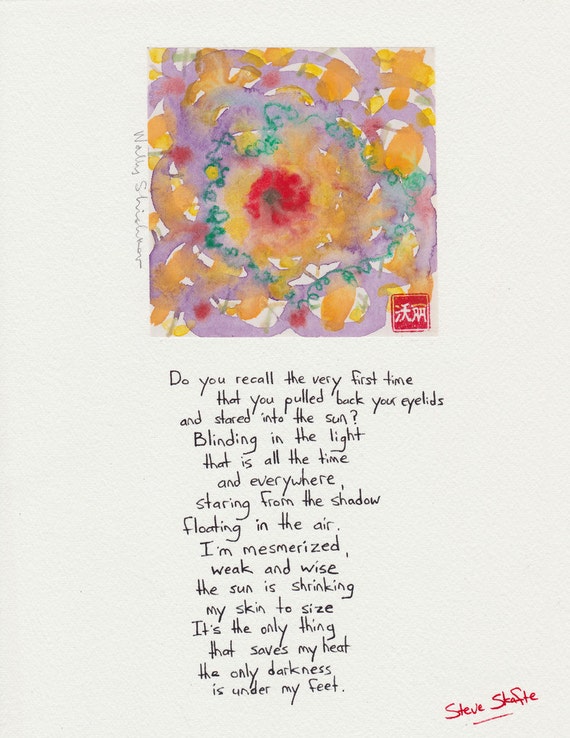 Wally
沃丽
Do you recall the very first time
that you pulled back your eyelids
and stared into the sun?
Blinding in the light
that is all the time
and everywhere,
staring from the shadow
floating in the air.
I'm mesmerized,
weak and wise
the sun is shrinking
my skin to size
It's the only thing
that saves my heat
the only darkness
is under my feet.
Steve Skafte